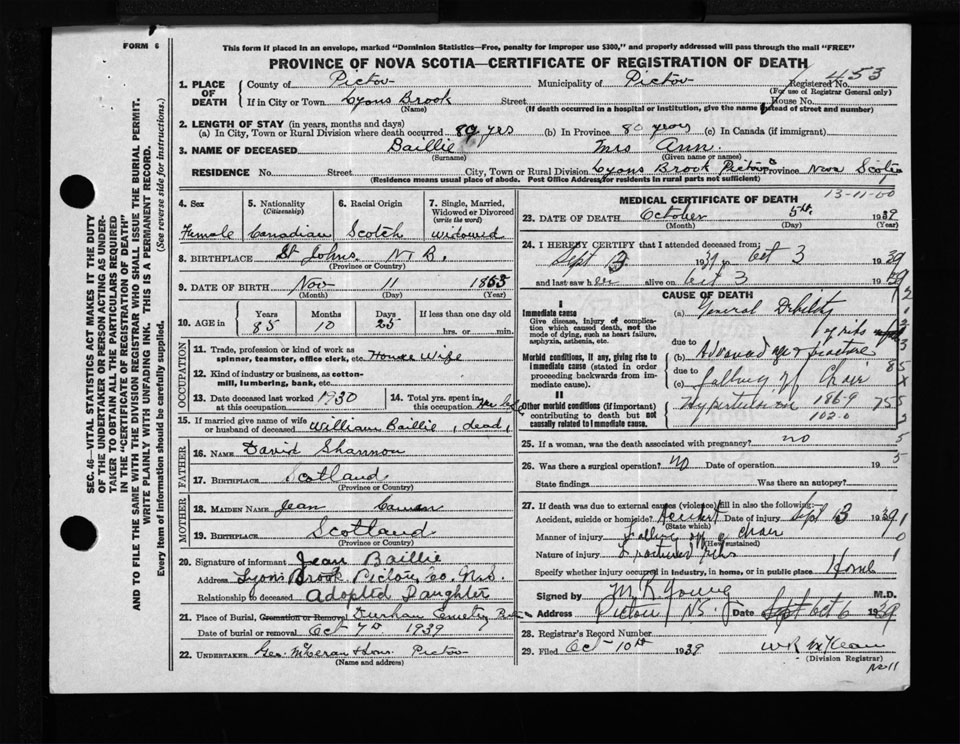 FORM 6
This form if placed in an envelope, marked "Dominion Statistics—Free, penalty for improper use $300," and properly addressed will pass through the mail "FREE"
PROVINCE OF NOVA SCOTIA—CERTIFICATE OF REGISTRATION OF DEATH
1. PLACE OF DEATH County of Pictou Municipality of Pictou Registered No. 453
(For use of Registrar General only)
If in City or Town Lyons Brook Street House No.
(Name) (If death occurred in a hospital or institution, give the name instead of street and number)
2. LENGTH OF STAY (in years, months and days)
(a) In City, Town or Rural Division where death occurred 80 yrs (b) In Province 80 years (c) In Canada (if immigrant)
3. NAME OF DECEASED Baillie Mrs Ann.
(Surname) (Given name or names)
RESIDENCE No. Street City, Town or Rural Division Lyons Brook Pictou Province Nova Scotia
(Residence means usual place of abode. Post Office Address for residents in rural parts not sufficient)
13-11-00
4. Sex 5. Nationality (Citizenship) 6. Racial Origin 7. Single, Married, Widowed or Divorced (write the word)
Female Canadian Scotch Widowed
8. BIRTHPLACE St Johns N.B.
(Province or Country)
9. DATE OF BIRTH Nov 11 1853
(Month) (Day) (Year)
10. AGE in Years Months Days If less than one day old
85 10 25 hrs. or min.
OCCUPATION
11. Trade, profession or kind of work as spinner, teamster, office clerk, etc. House Wife
12. Kind of industry or business, as cotton-mill, lumbering, bank, etc.
13. Date deceased last worked at this occupation 1930 14. Total yrs. spent in this occupation
15. If married give name of wife or husband of deceased William Baillie, dead,
FATHER
16. NAME David Shannon
17. BIRTHPLACE Scotland
(Province or Country)
MOTHER
18. MAIDEN NAME Jean
19. BIRTHPLACE Scotland
(Province or Country)
20. Signature of informant Jean Baillie
Address Lyons Brook Pictou Co. N.S.
Relationship to deceased Adopted Daughter
21. Place of Burial, Cremation or Removal Durham Cemetry
Date of burial or removal Oct 7th 1939
22. UNDERTAKER Geo. & Sons Pictou
(Name and address)
MEDICAL CERTIFICATE OF DEATH
23. DATE OF DEATH October 5th 1939
(Month) (Day) (Year)
24. I HEREBY CERTIFY that I attended deceased from:
Sept 13 1939 to Oct 3 1939
and last saw her alive on Oct 3 1939
CAUSE OF DEATH
I
Immediate cause (a) General Debility
Give disease, injury or complication which caused death, not the mode of dying, such as heart failure, asphyxia, asthenia, etc.
due to
Morbid conditions, if any, giving rise to immediate cause (stated in order proceeding backwards from immediate cause).
(b) Advanced age & fracture
due to
(c) falling off chair
II
Other morbid conditions (if important) contributing to death but not causally related to immediate cause.
Hypertension 186-9
102-0
25. If a woman, was the death associated with pregnancy? no
26. Was there a surgical operation? no Date of operation 19
State findings Was there an autopsy?
27. If death was due to external causes (violence) fill in also the following:
Accident, suicide or homicide? Accident Date of injury Sept 13 1939
(State which)
Manner of injury Falling off a chair
(How sustained)
Nature of injury Fractured ribs
Specify whether injury occurred in industry, in home, or in public place Home
Signed by M R Young M.D.
Address Pictou NS. Date Sept Oct 6 1939
28. Registrar's Record Number
29. Filed Oct-10th 1939 W R McKean
(Division Registrar)
No 11
SEC. 46—VITAL STATISTICS ACT MAKES IT THE DUTY OF THE UNDERTAKER OR PERSON ACTING AS UNDERTAKER TO OBTAIN ALL THE PARTICULARS REQUIRED IN THE "CERTIFICATE OF REGISTRATION OF DEATH"
AND TO FILE THE SAME WITH THE DIVISION REGISTRAR WHO SHALL ISSUE THE BURIAL PERMIT.
WRITE PLAINLY WITH UNFADING INK. THIS IS A PERMANENT RECORD.
Every item of information should be carefully supplied. (See reverse side for instructions.)